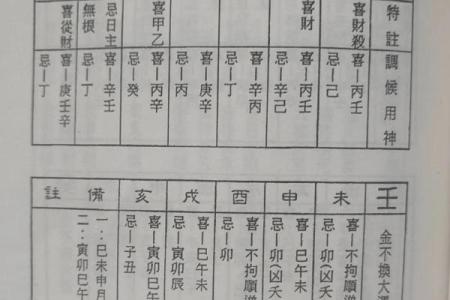 特註
喜財殺
喜財
喜甲乙
忌日主
無根
喜從財
調候用神
喜—丙壬
忌—己
喜—丙壬
忌—辛己
喜—辛丙
忌—丁
喜—庚辛
忌—丙
喜—丙辛
忌—癸
喜—辛壬
忌—丁
喜—庚壬辛
忌—丁
壬
未
申
酉
戌
亥
備註
金不換大
喜—不拘順
忌—卯凶夭
喜—巳午未
忌—卯凶夭
喜—不拘順
忌—卯
喜—巳午未
忌—寅卯辰
喜—寅卯巳午
忌—子丑
一：巳未申月
二：寅卯巳午